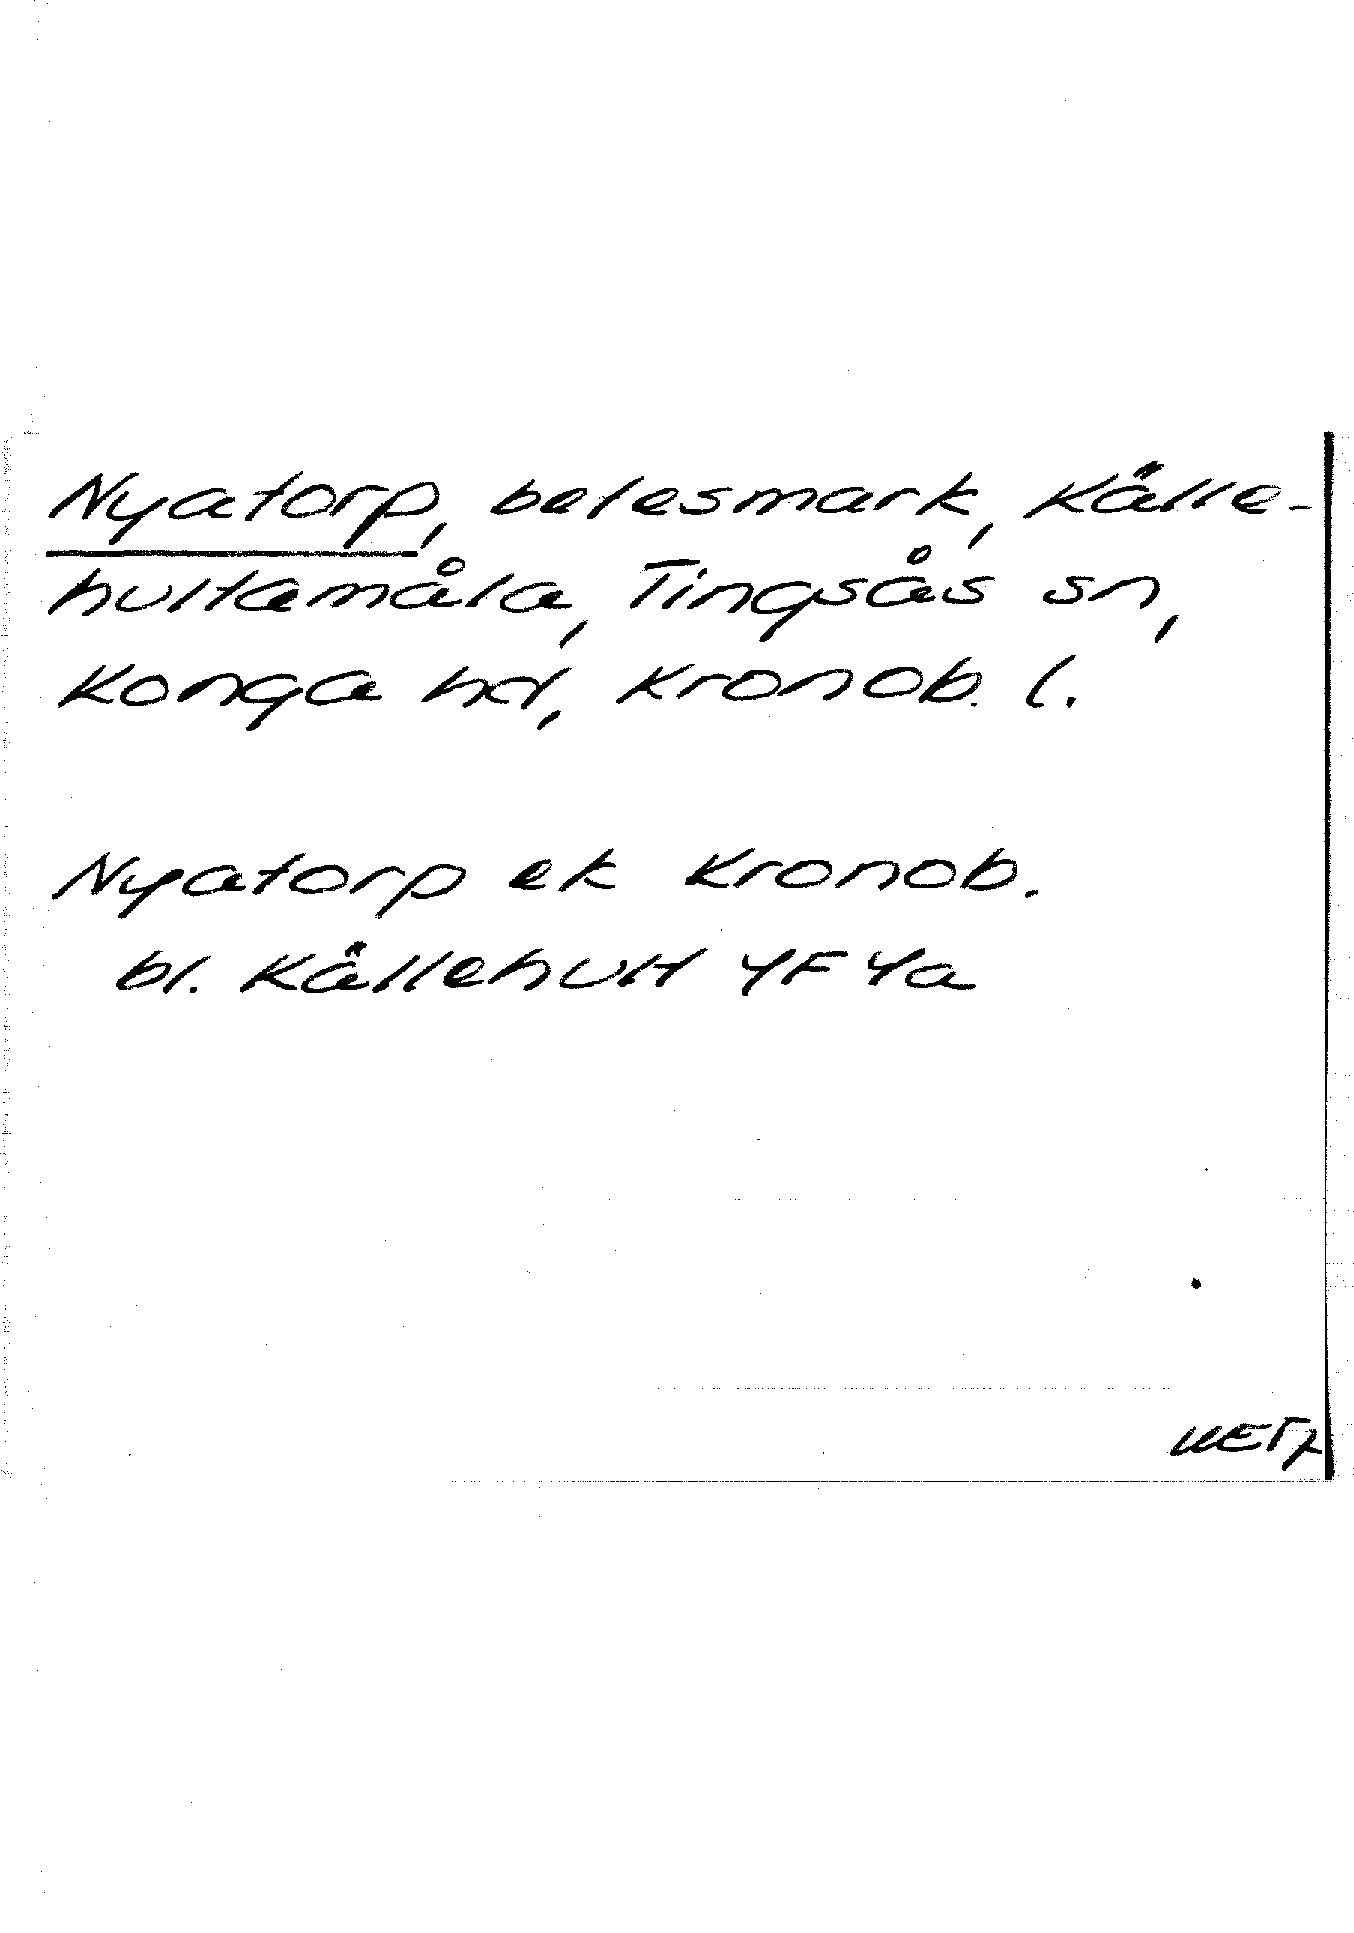 Nyatorp, betesmark, Källe-
hultamåla, Tingsås sn,
Konga hd, Kronob. l.
Nyatorp ek Kronob.
bl. Källehult 4F 4a